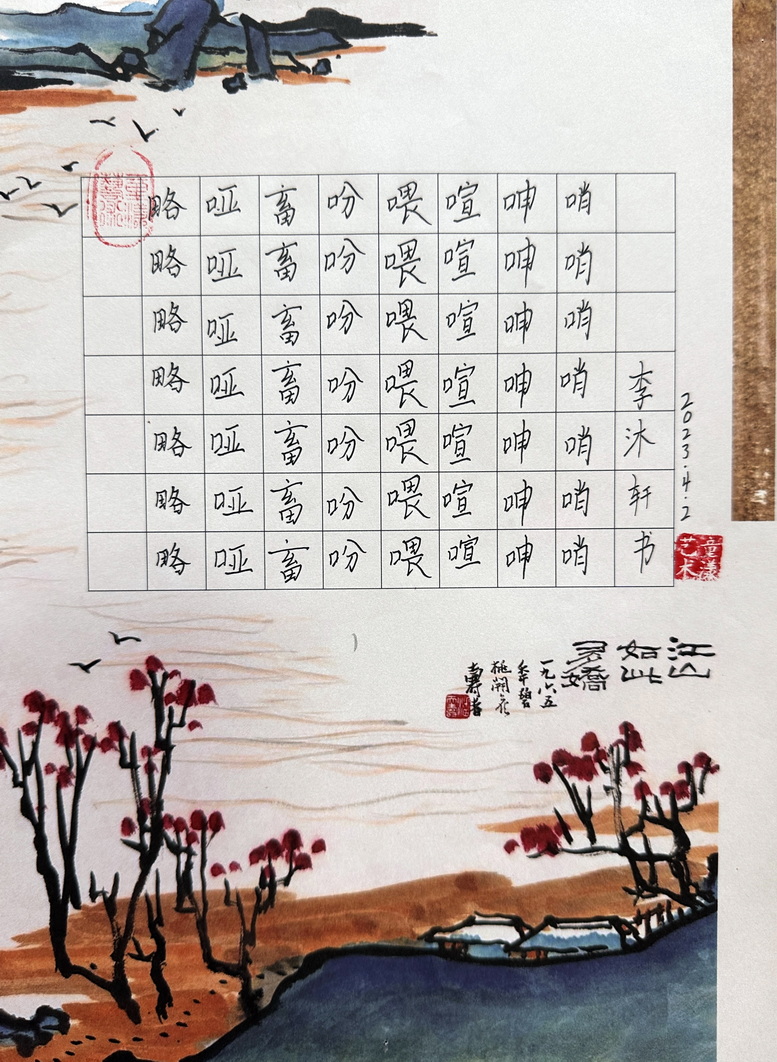 略哑畜吩喂喧呻哨
略哑畜吩喂喧呻哨
略哑畜吩喂喧呻哨
略哑畜吩喂喧呻哨
略哑畜吩喂喧呻哨
略哑畜吩喂喧呻哨
略哑畜吩喂喧呻哨
李沐轩书
2023.4.2
童漾
艺术
江山
如此
多娇
一九六五